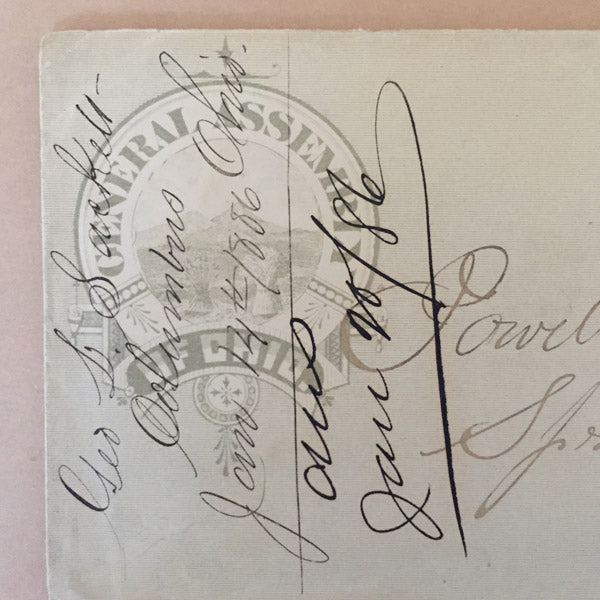 GENERAL ASSEMBLY
OF OHIO
Geo L. Sackett
Columbus Ohio.
Jany 14th/1886
ans
Jan 20/86
Powel
Sp